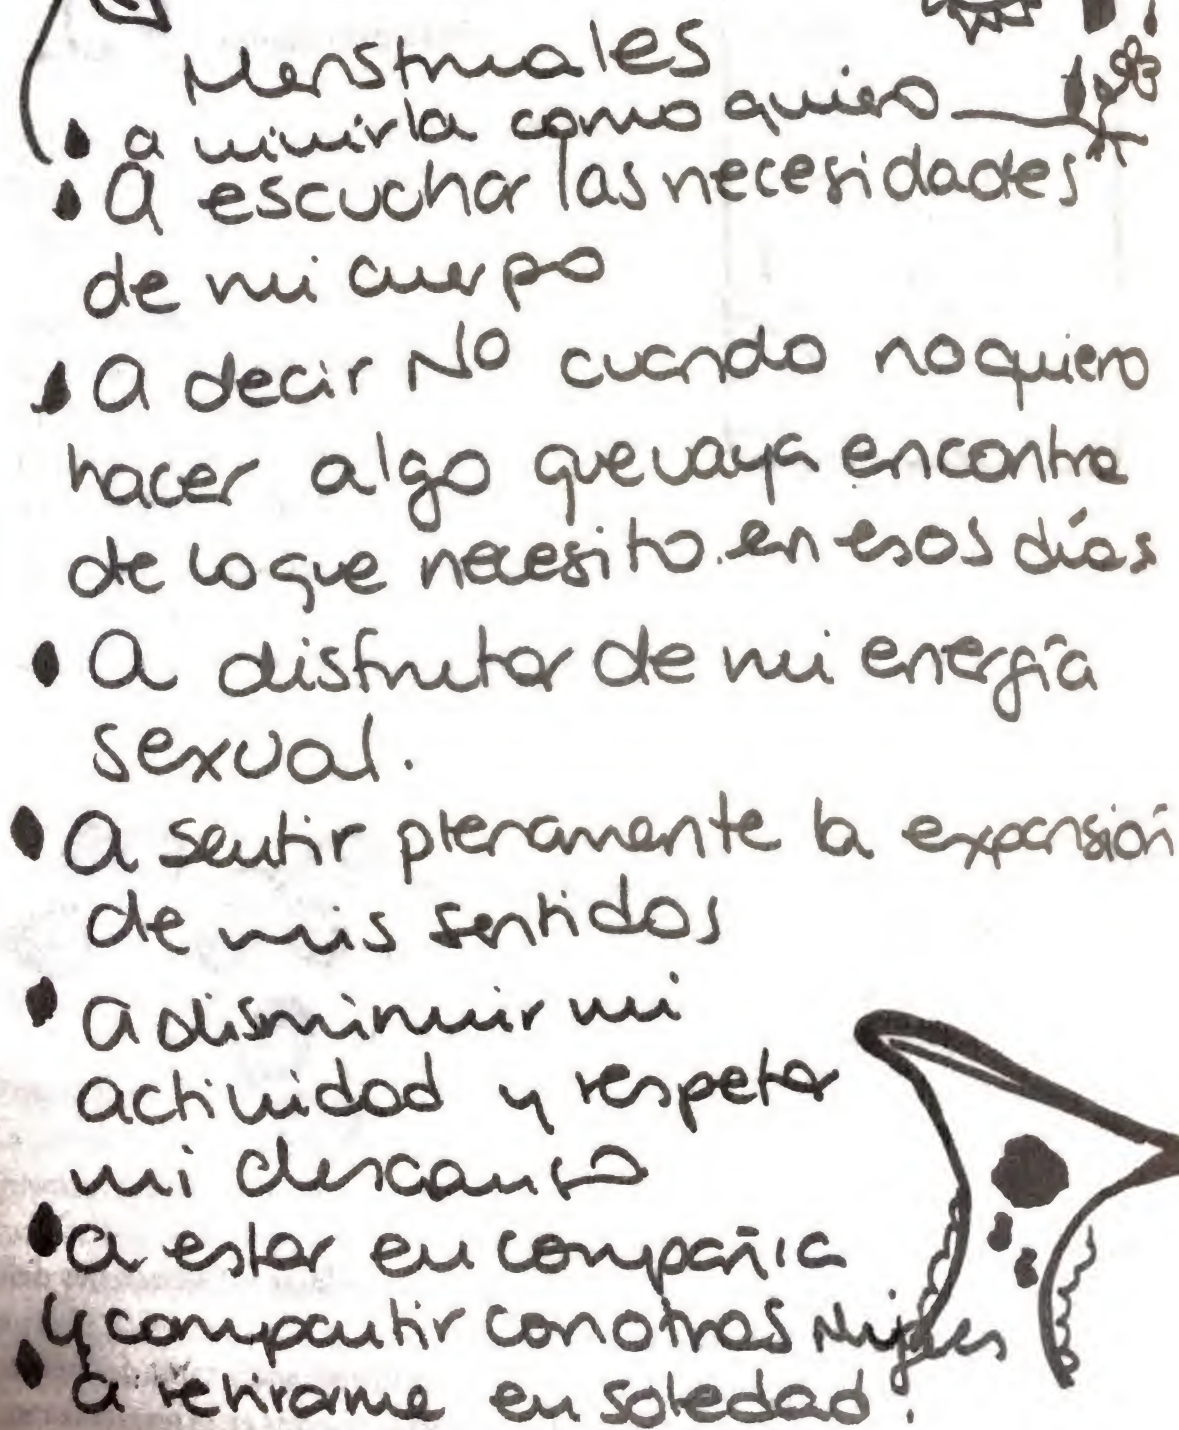 Menstruales
• a vivirla como quiero
• A escuchar las necesidades
de mi cuerpo
• A decir NO cuando no quiero
hacer algo que vaya en contra
de lo que necesito en esos días
• A disfrutar de mi energía
sexual.
• A sentir plenamente la expansión
de mis sentidos
• A disminuir mi
actividad y respetar
mi descanso
• a estar en compañía
y compartir con otras Mujeres
• a retirarme en soledad.